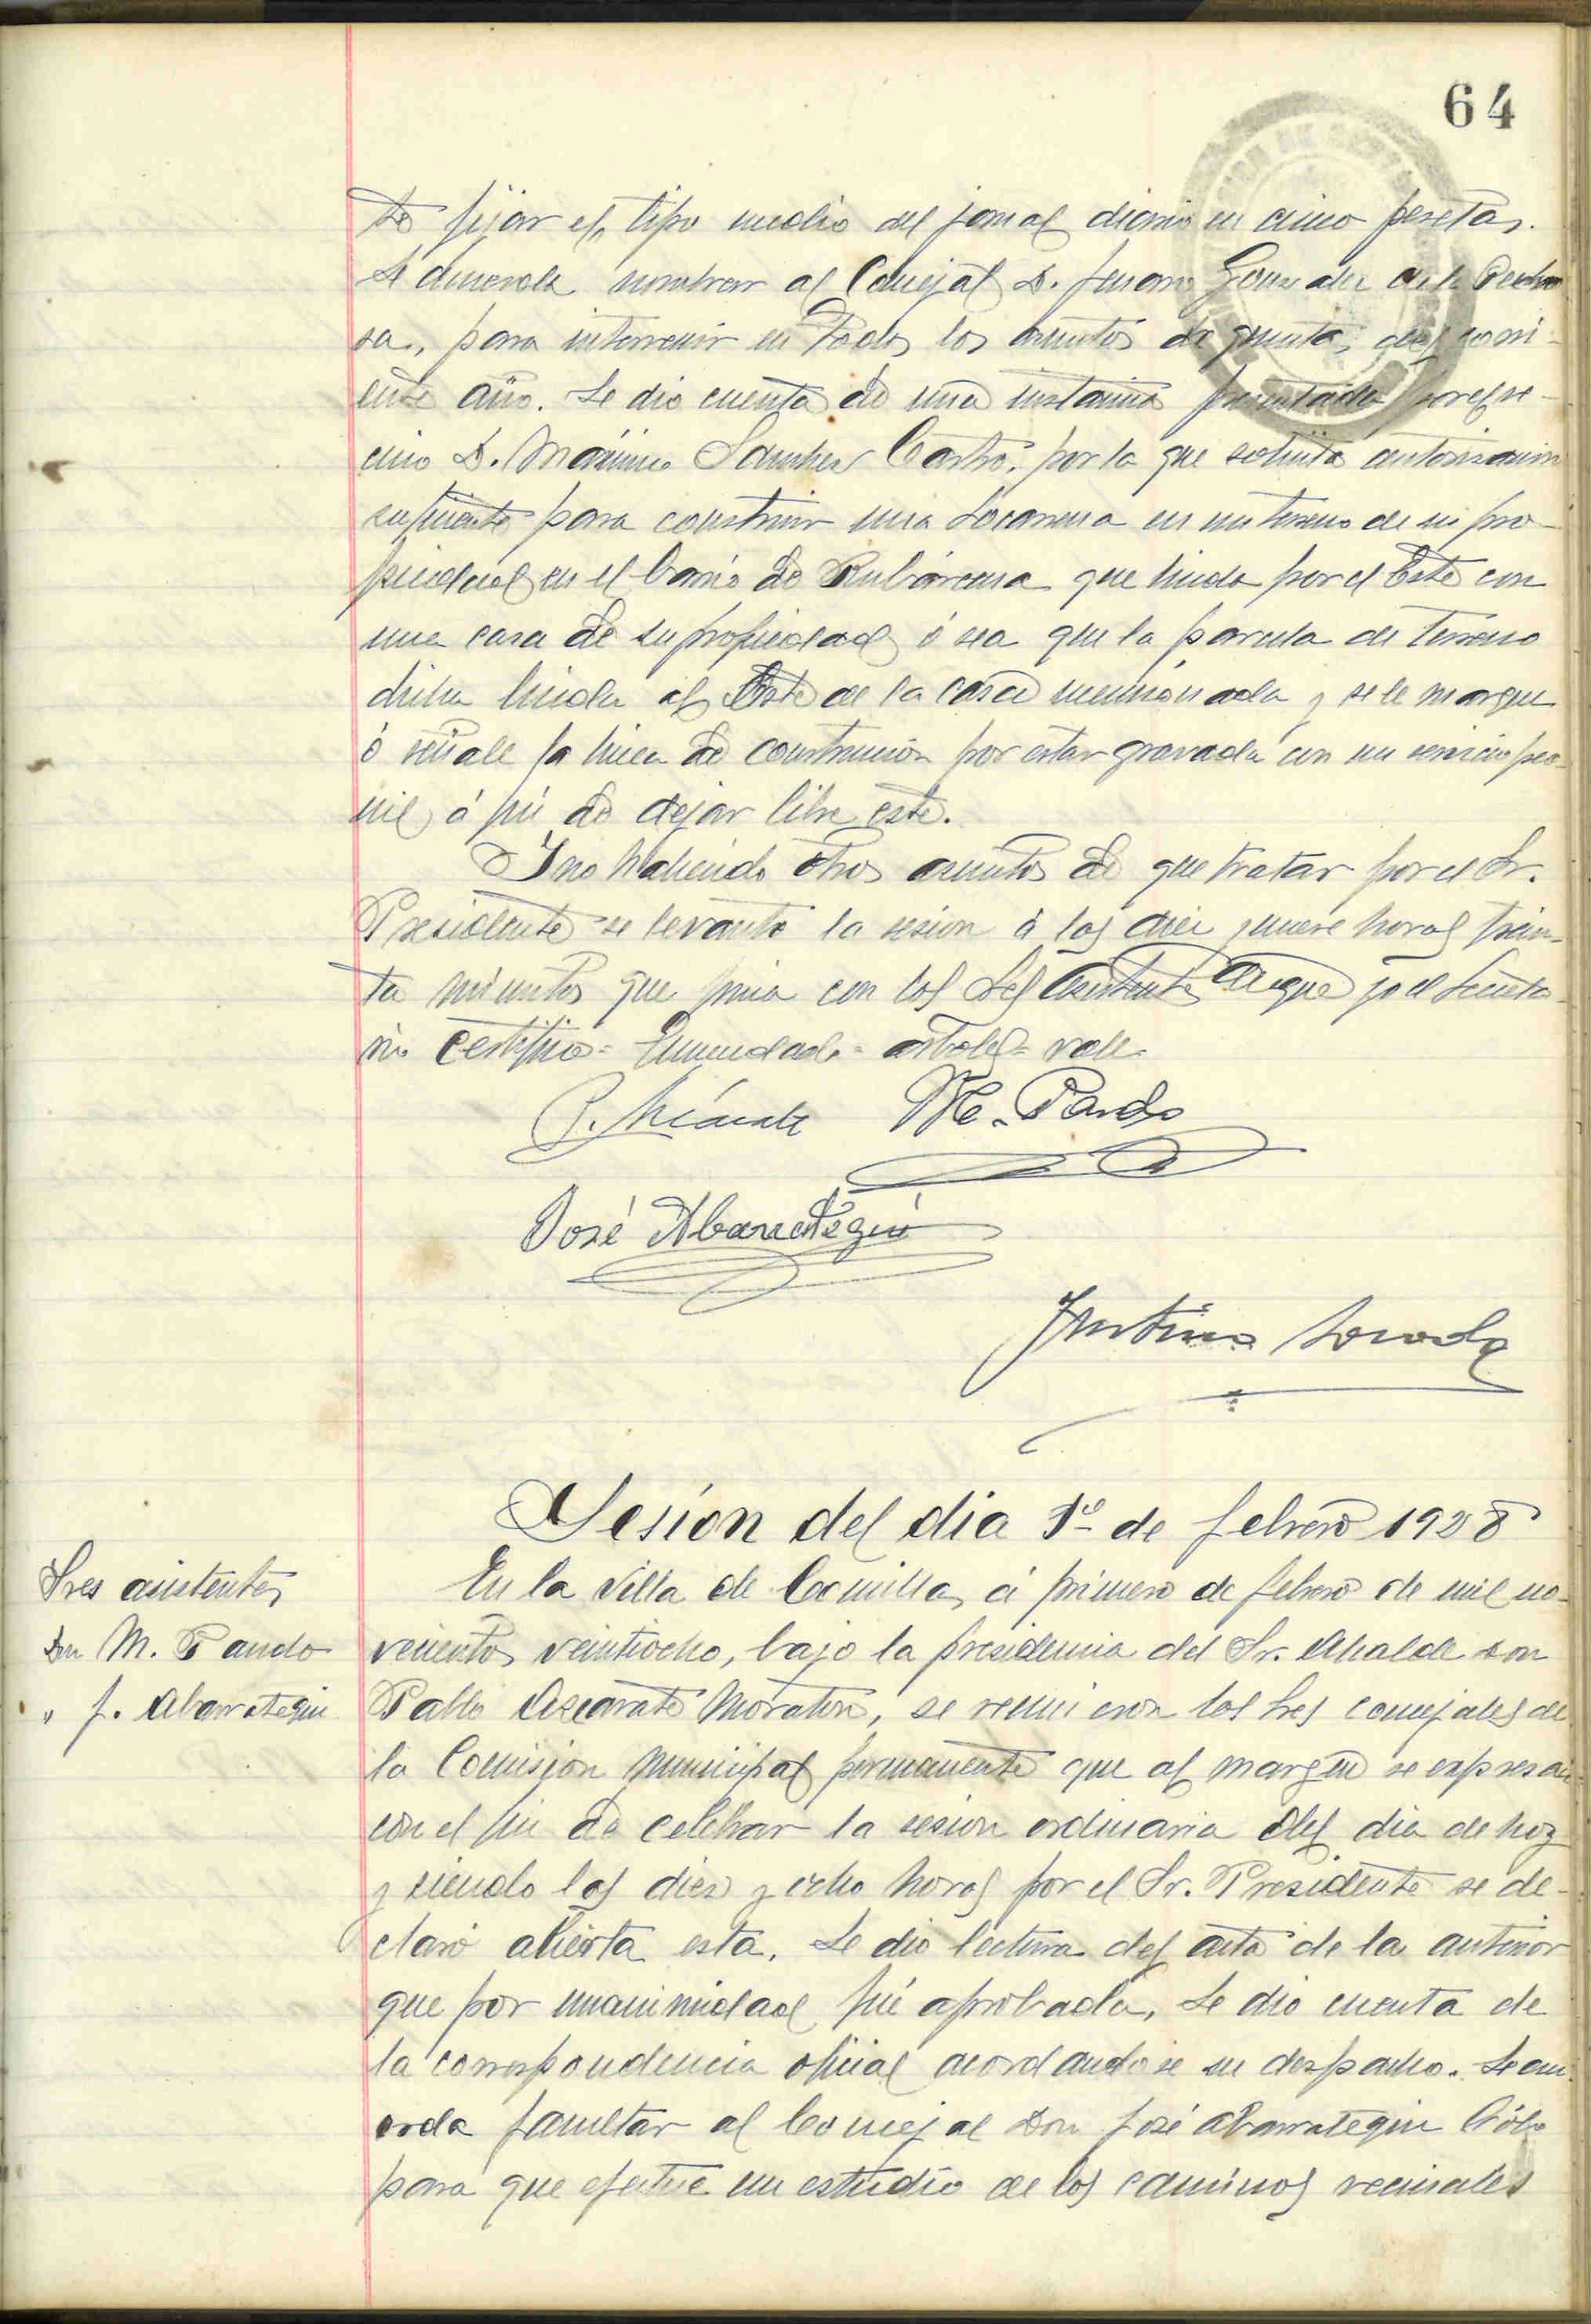 64
to fijar el tipo medio del jornal diario en cinco pesetas.
Se acuerda nombrar al Concejal D. Genaro Gonzalez de la Pedro
sa, para intervenir en todos los asuntos de quintas del corri-
ente año. Se dio cuenta de una instancia presentada por el ve-
cino D. Máximo Sanchez Castro, por la que solicita autorizacion
suficiente para construir una socarrena en un terreno de su pro-
piedad en el barrio de Rubárcena que linda por el Este con
una casa de su propiedad ó sea que la parcela de terreno
dicha linda al Oste de la casa mencionada y se le marque
ó señale la linea de construccion por estar gravada con un servicio peo-
nil á fin de dejar libre este.
Y no habiendo otros asuntos de que tratar por el Sr.
Presidente se levantó la sesion á las diez y nueve horas trein-
ta minutos que firma con los Sres asistentes de que yo el Secreta-
rio certifico = Enmendado = arboles = vale.
M. Pando
José Abarrategui
Sesión del dia 1º de febrero 1928
Sres asistentes
En la villa de Comillas á primero de febrero de mil no-
Don M. Pando
vecientos veintiocho, bajo la presidencia del Sr. Alcalde don
" J. Abarrategui
Pablo Azcarate Moraton, se reunieron los Sres concejales de
la Comision municipal permanente que al margen se expresan
con el fin de celebrar la sesion ordinaria del dia de hoy
y siendo las diez y ocho horas por el Sr. Presidente se de-
claró abierta esta. Se dio lectura del acta de la anterior
que por unanimidad fué aprobada. Se dio cuenta de
la correspondencia oficial acordandose su despacho. Se acu
erda facultar al Concejal Don José Abarrategui
para que efectue un estudio de los caminos vecinales